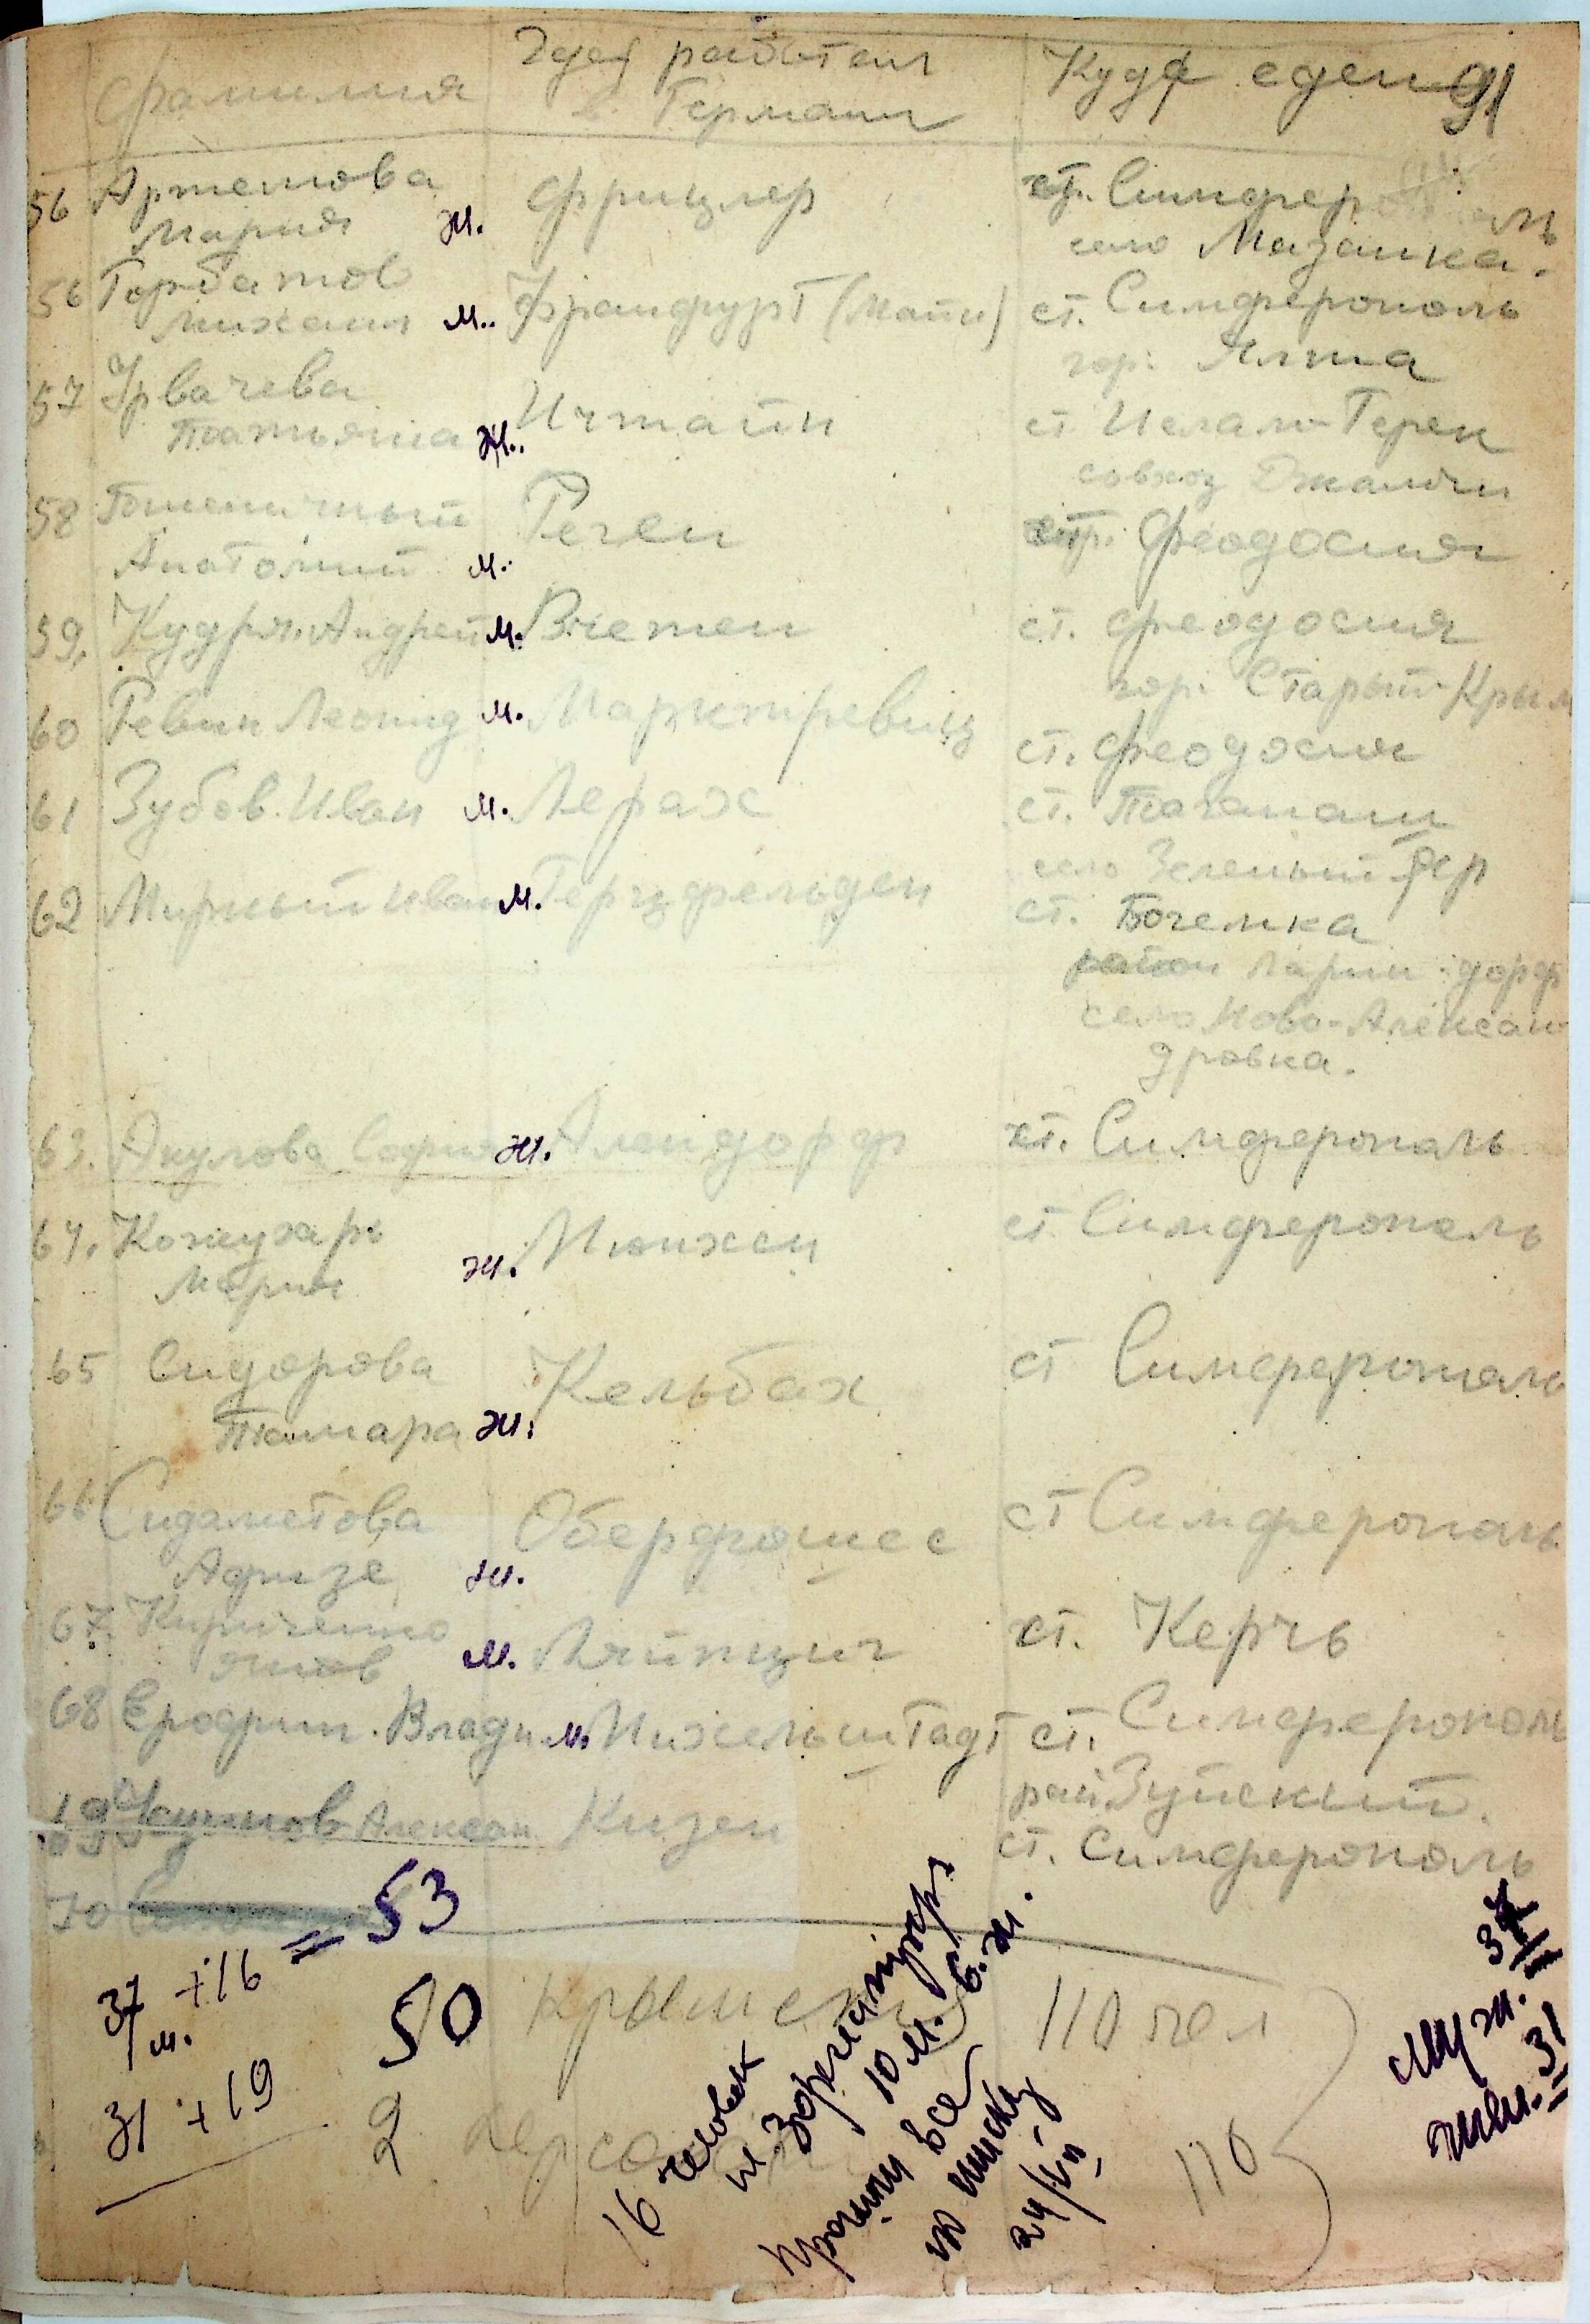 фамилия
где работал
в Германии
Куда едет
91
56 Артемова
Мария ж. Фрицлер
ст. Симферополь
село Мазанка.
56 Горбатов
Михаил м. Франкфурт (Майн)
ст. Симферополь
гор. Ялта
57 Урвачева
Татьяна ж. Ичтайн
ст Ислам-Терек
совхоз
58
Анатолий м. Течен
ст. Феодосия
59. Кудря Андрей м. Вremen
ст. Феодосия
гор. Старый Крым
60 Ревин Леонид м. Марктревиц
ст. Феодосия
61 Зубов Иван м. Лерах
ст. Таганаш
село Зеленый Яр
62 Мирный Иван м. Герцфельден
ст. Богемка
район дорф
село Ново-Алексан
дровка.
63. Акулова София ж. Алендорф
ст. Симферополь
64. Кожухарь
Мария ж. Мюнхен
ст Симферополь
65 Сидорова
Тамара ж. Кельбах
ст Симферополь
66 Сидаметова
Афизе ж.
ст Симферополь
67. Кириченко
Яков м. Ляйпциг
ст. Керчь
68 Владим м. Михельштадт
ст. Симферополь
рай Зуйский.
Алексан Кизен
ст. Симферополь
70
37 +16 = 53
м.
31 +19 50
2
110 чел
110
16 человек
10 м. 6 ж.
Прошли все
по списку
24/V
муж. 37
жен. 31